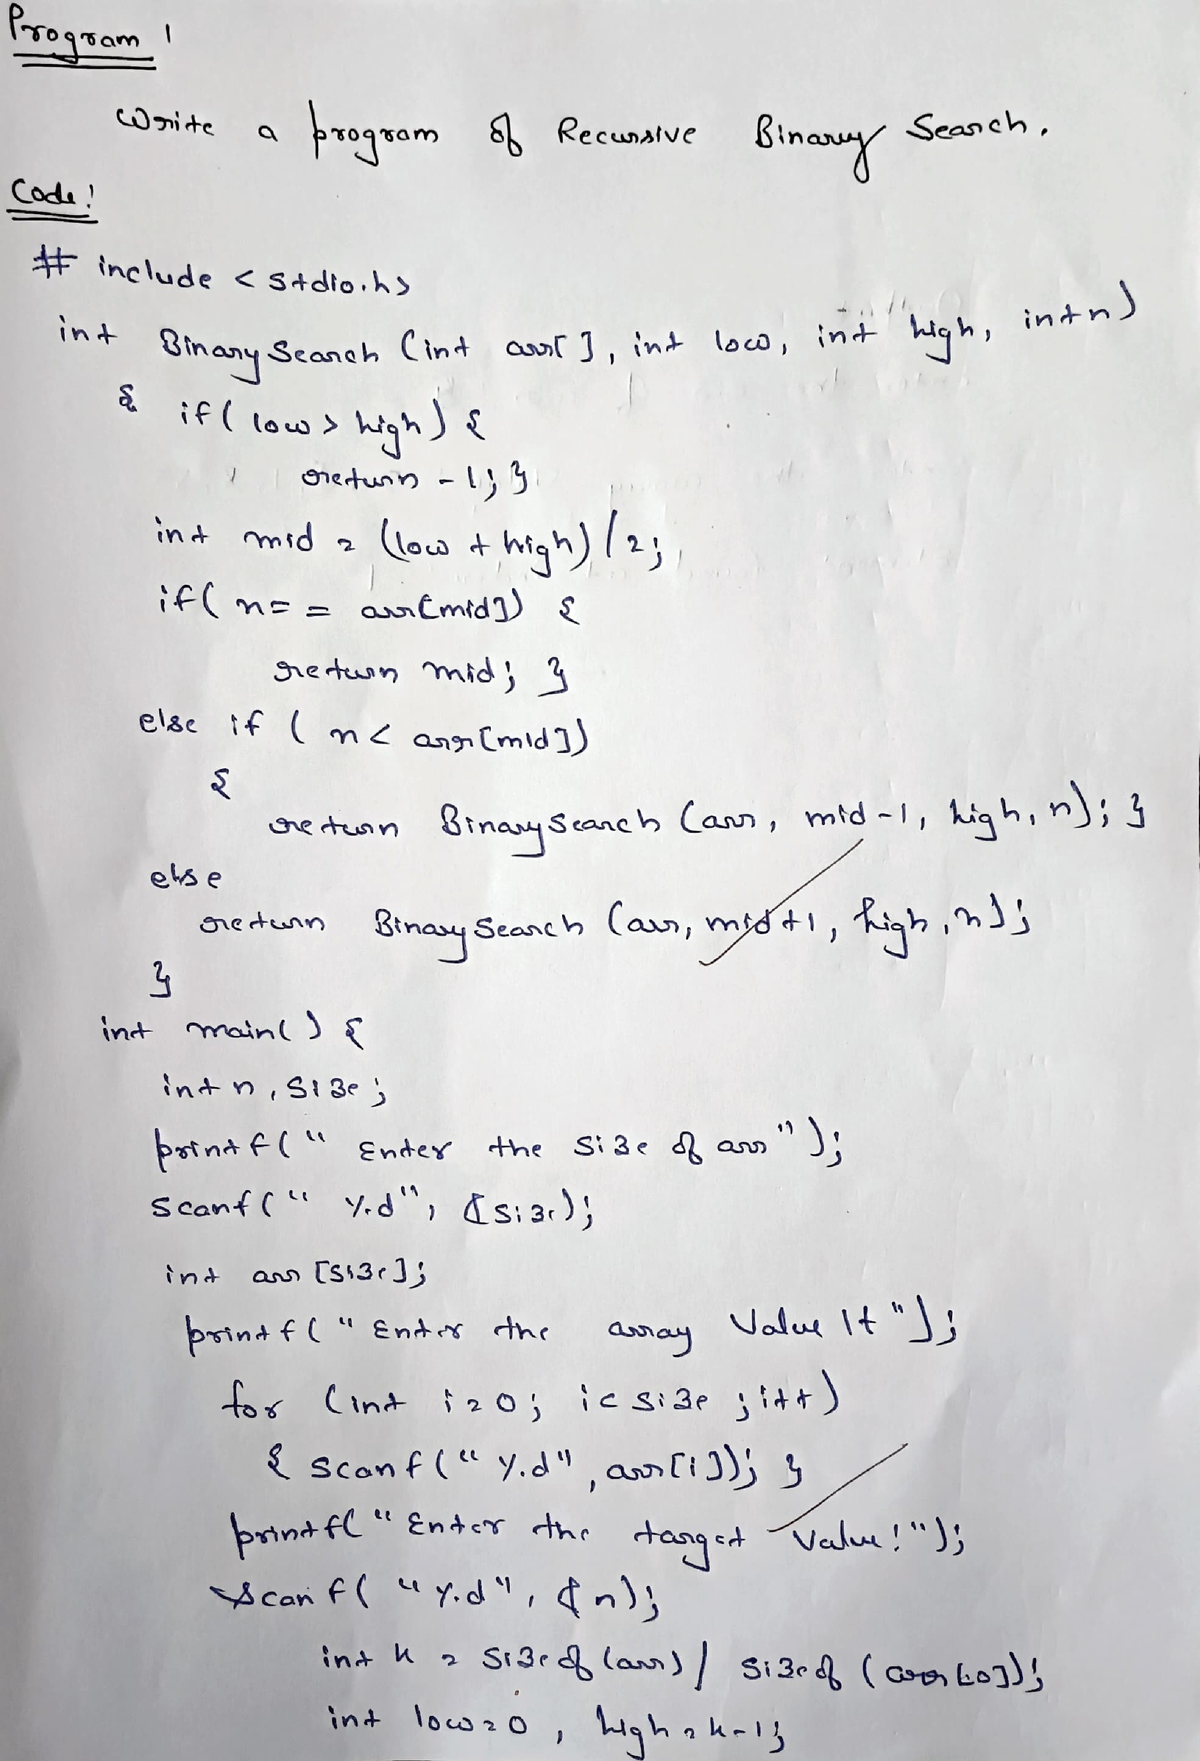 Program 1
Write a program of Recursive Binary Search.
Code!
# include <stdio.h>
int Binary Search (int arr[], int low, int high, int n)
{ if( low > high) {
return -1; }
int mid = (low + high)/2;
if( n== arr[mid]) {
return mid; }
else if ( n< arr[mid])
{
return BinarySearch (arr, mid-1, high, n); }
else
return Binary Search (arr, mid+1, high, n);
}
int main() {
int n, size;
printf(" Enter the size of arr");
scanf(" %d", &size);
int arr [size];
printf(" Enter the array Value 1t");
for (int i=0; i< size ; i++)
{ scanf(" %d", arr[i]); }
printf(" Enter the target value!");
scanf( " %d", &n);
int k = sizeof(arr)/ sizeof (arr[0]);
int low=0, high=k-1;